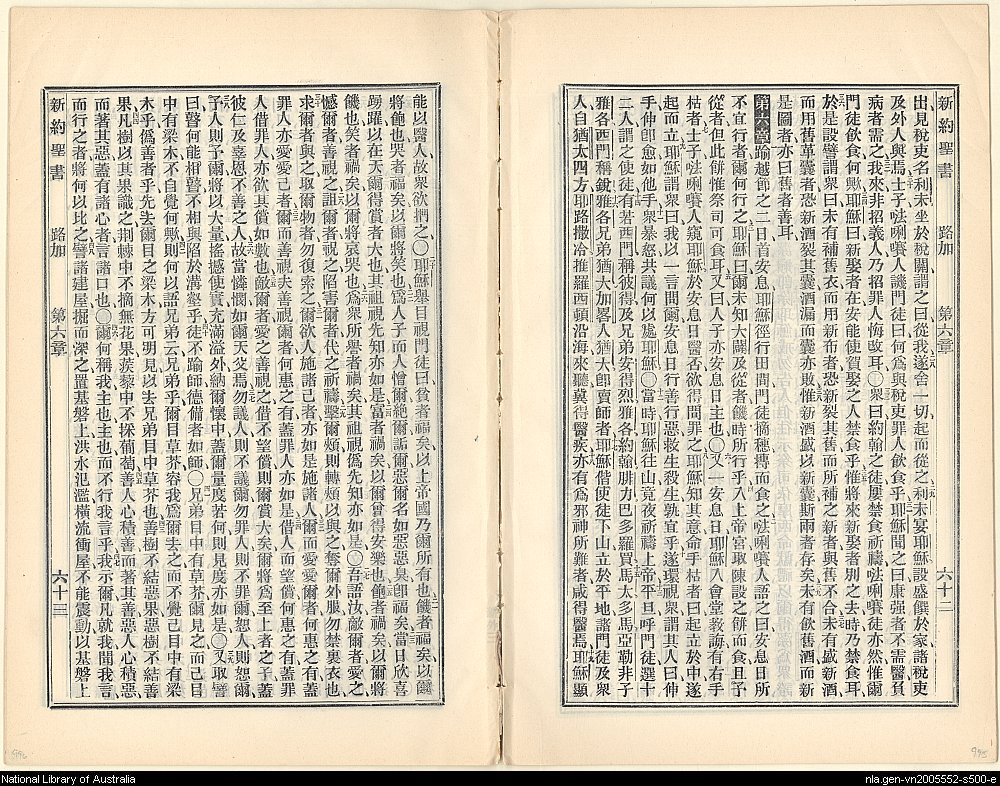 新約聖書 路加 第六章 六十二
出見稅吏名利未坐於稅關謂之曰從我遂舍一切起而從之利未宴耶穌設盛饌於家諸稅吏
及外人與焉士子𠵽唎㘔人譏門徒曰何爲與稅吏罪人飲食乎耶穌聞之曰康强者不需醫負
病者需之我來非招義人乃招罪人悔改耳〇衆曰約翰之徒屢禁食祈禱𠵽唎㘔徒亦然惟爾
門徒飲食何歟耶穌曰新娶者在安能使賀娶之人禁食乎惟將來新娶者別之去時乃禁食耳
於是設譬謂衆曰未有補舊衣而用新布者恐新裂其舊而所補之新者與舊不合未有盛新酒
而用舊革囊者恐新酒裂其囊酒漏而囊亦敗惟新酒盛以新囊斯兩者存矣未有飲舊酒而新
是圖者亦曰舊者善耳
第六章踰越節之二日首安息耶穌徑行田間門徒摘穗摶而食之𠵽唎㘔人語之曰安息日所
不宜行者爾何行之耶穌曰爾未知大闢及從者饑時所行乎入上帝宮取陳設之餅而食且予
從者但此餅惟祭司可食耳又曰人子亦安息日主也〇又一安息日耶穌入會堂敎誨有右手
枯者士子𠵽唎㘔人窺耶穌於安息日醫否欲得間罪之耶穌知其意命手枯者曰起立於中遂
起而立耶穌謂衆曰我以一言問爾安息日行善行惡救生殺生孰宜乎遂環視衆謂其人曰伸
手伸卽愈如他手衆暴怒共議何以處耶穌〇當時耶穌往山竟夜祈禱上帝平旦呼門徒選十
二人謂之使徒有若西門稱彼得及兄弟安得烈雅各約翰腓力巴多羅買馬太多馬亞勒非子
雅各西門稱銳雅各兄弟猶大加畧人猶大卽賣師者耶穌偕使徒下山立於平地諸門徒及衆
人自猶太四方耶路撒冷推羅西頓沿海來聽冀得醫疾亦有爲邪神所難者咸得醫焉耶穌顯
能以醫人故衆欲捫之〇耶穌舉目視門徒曰貧者福矣以上帝國乃爾所有也饑者福矣以爾
將飽也哭者福矣以爾將笑也爲人子而人憎爾絕爾詬爾惡爾名如惡惡臭卽福矣當日欣喜
踴躍以在天爾得賞者大也其祖視先知亦如是富者禍矣以爾曾得安樂也飽者禍矣以爾將
饑也笑者禍矣以爾將哀哭也爲衆所譽者禍矣其祖視僞先知亦如是〇吾語汝敵爾者愛之
憾爾者善視之詛爾者祝之陷害爾者代之祈禱擊爾頰則轉頰以與之奪爾外服勿禁裏衣也
求爾者與之取爾物者勿復索之爾欲人施諸己者亦如是施諸人爾而愛愛爾者何惠之有蓋
罪人亦愛愛己者爾而善視夫善視爾者何惠之有蓋罪人亦如是借人而望償何惠之有蓋罪
人借罪人亦欲其償如數也敵爾者愛之善視之借不望償則爾賞大矣爾將爲至上者之子蓋
彼仁及辜恩不善之人故當憐憫如爾天父焉勿議人則不議爾勿罪人則不罪爾恕人則恕爾
予人則予爾將以大量搖撼使實充滿溢外納爾懷中蓋爾量度若何則見度亦如是〇又取譬
曰瞽何能相瞽不相與陷於溝壑乎徒不踰師德備者如師〇兄弟目中有草芥爾見之而己目
中有梁木不自覺何歟則何以語兄弟云兄弟乎爾目草芥容我爲爾去之而不覺己目中有梁
木乎僞爲善者乎先去爾目之梁木方可明見以去兄弟目中草芥也善樹不結惡果惡樹不結善
果凡樹以其果識之荆棘中不摘無花果蒺藜中不採葡萄善人心積善而著其善惡人心積惡
而著其惡蓋有諸心者言諸口也〇爾何稱我主也主也而不行我言乎我示爾凡就我聞我言
而行之者將何以比之譬諸建屋掘而深之置基磐上洪水氾濫橫流衝屋不能震動以基磐上
新約聖書 路加 第六章 六十三
National Library of Australia
nla.gen-vn2005552-s500-e